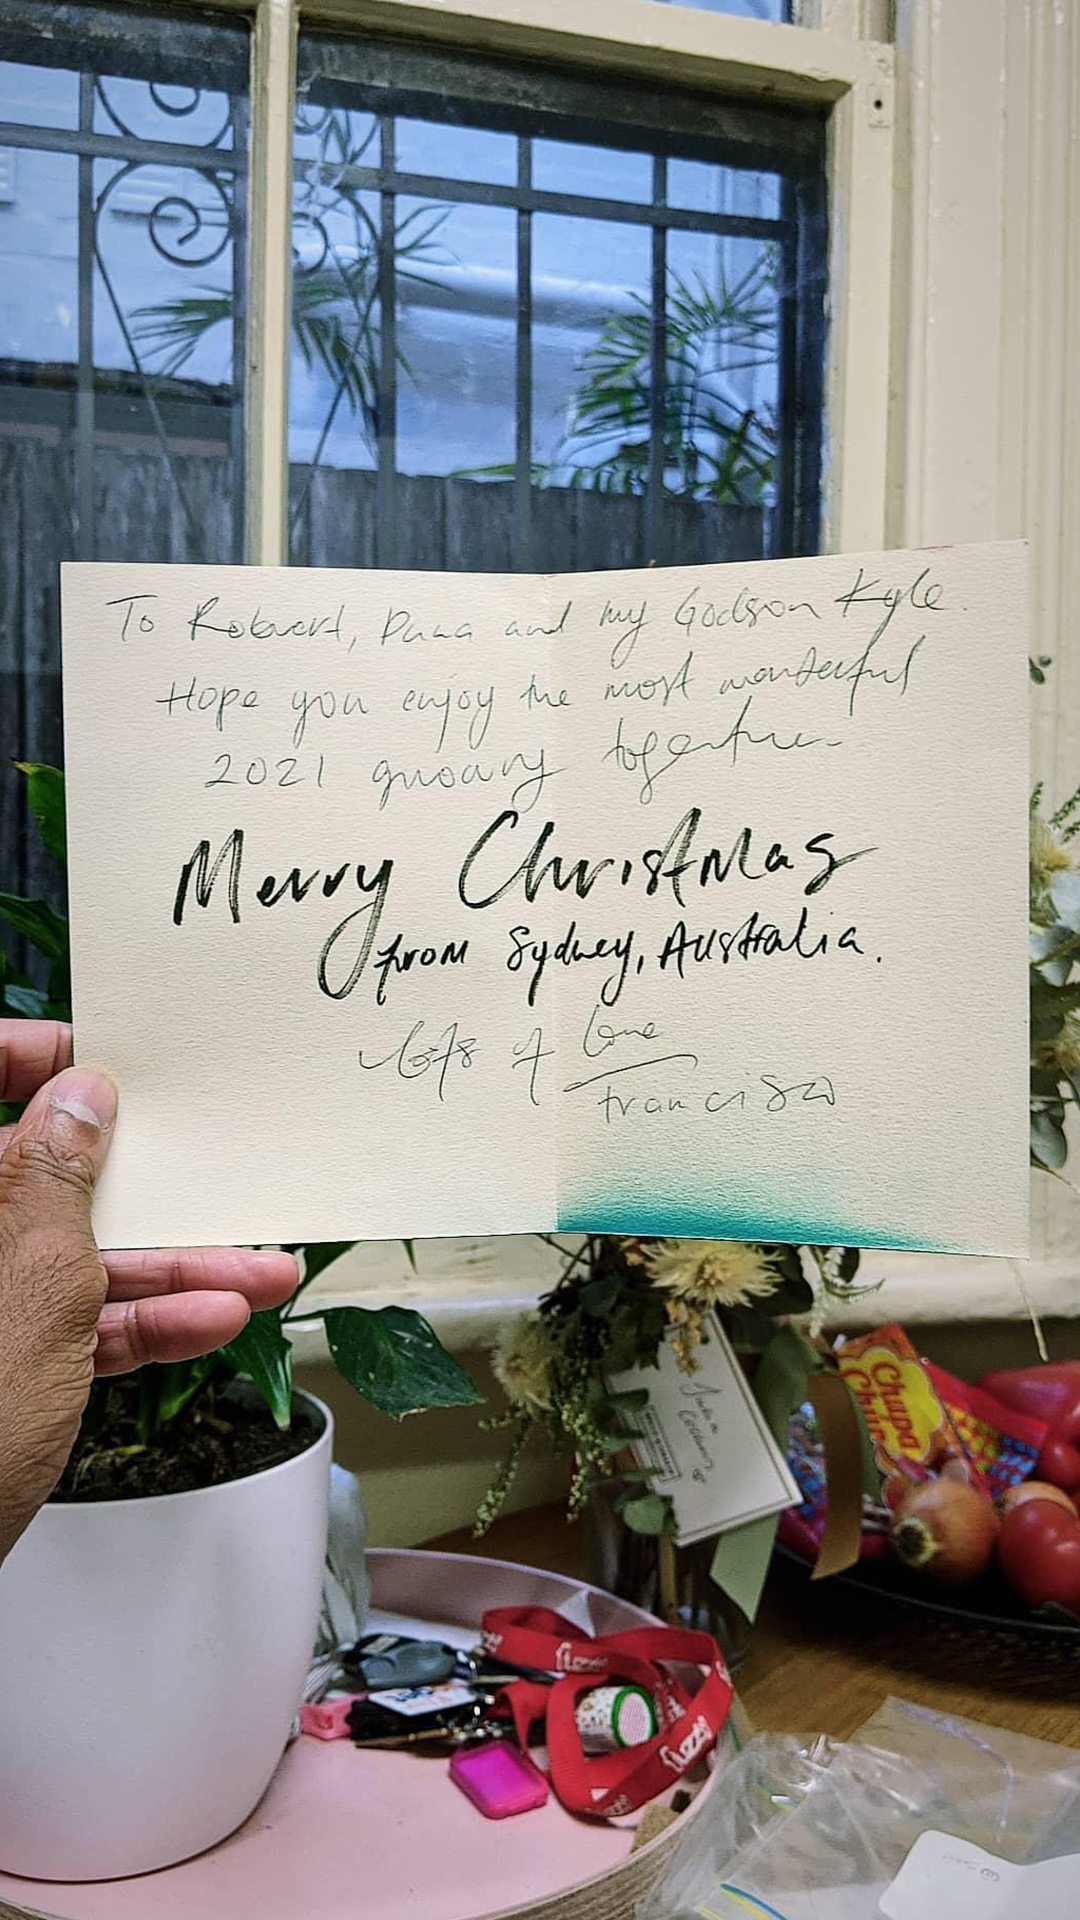 To Robert, Dana and my Godson Kyle.
Hope you enjoy the most wonderful
2021 growing together.
Merry Christmas
from Sydney, Australia.
lots of love
Francisco
Chupa
Chups